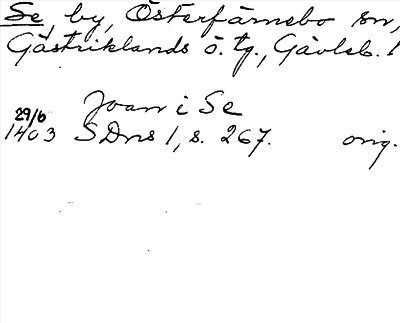 Se, by, Österfärnebo sn,
Gästriklands ö. tg., Gävleb. l
Joan i Se
29/6
1403 SDns 1, s. 267. orig.